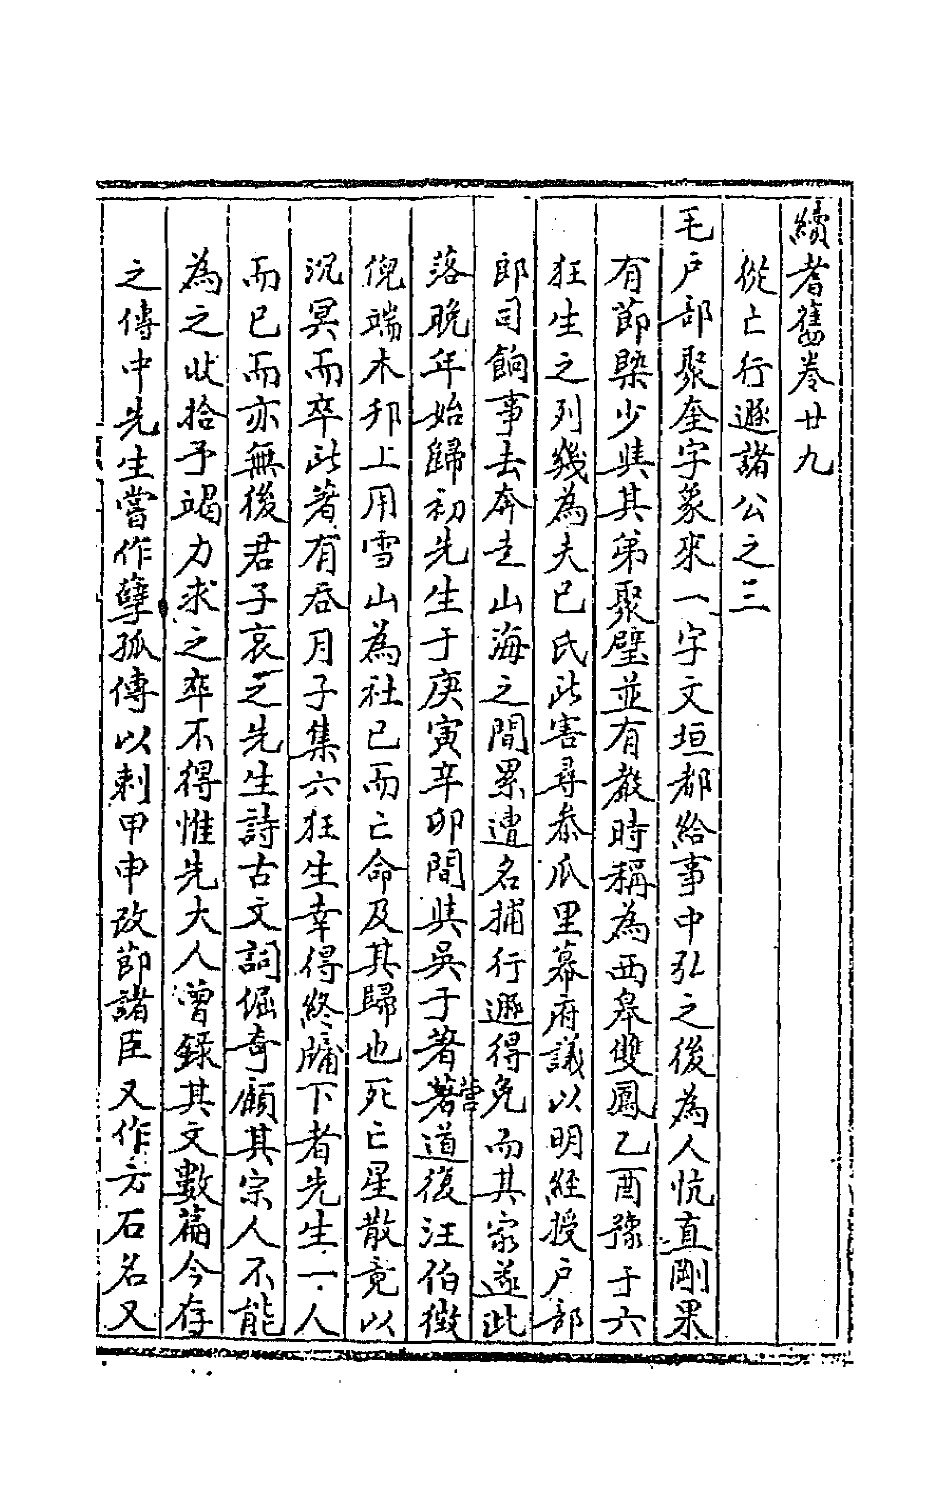 續耆舊卷廿九
從亡行遯諸公之三
毛户部聚奎字象來一字文垣都給事中弘之後為人忼直剛果
有節槩少與其弟聚壁並有教時稱為西皋雙鳳乙酉豫于六
狂生之列幾為夫已氏此害尋叅瓜里幕府議以明經授户部
郎司餉事去奔走山海之間累遭名捕行遯得免而其家遂此
落晚年始歸初先生于庚寅辛卯間與吳于著菅著道復汪伯徵
倪端木邦上用雪山為社已而亡命及其歸也死亡星散竟以
沉冥而卒此著有吞月子集六狂生幸得終牖下者先生一人
而已而亦無後君子哀之先生詩古文詞倔奇顧其宗人不能
為之收拾予竭力求之卒不得惟先大人曽錄其文數篇今存
之傳中先生嘗作孽孤傳以刺甲申改節諸臣又作方石名又